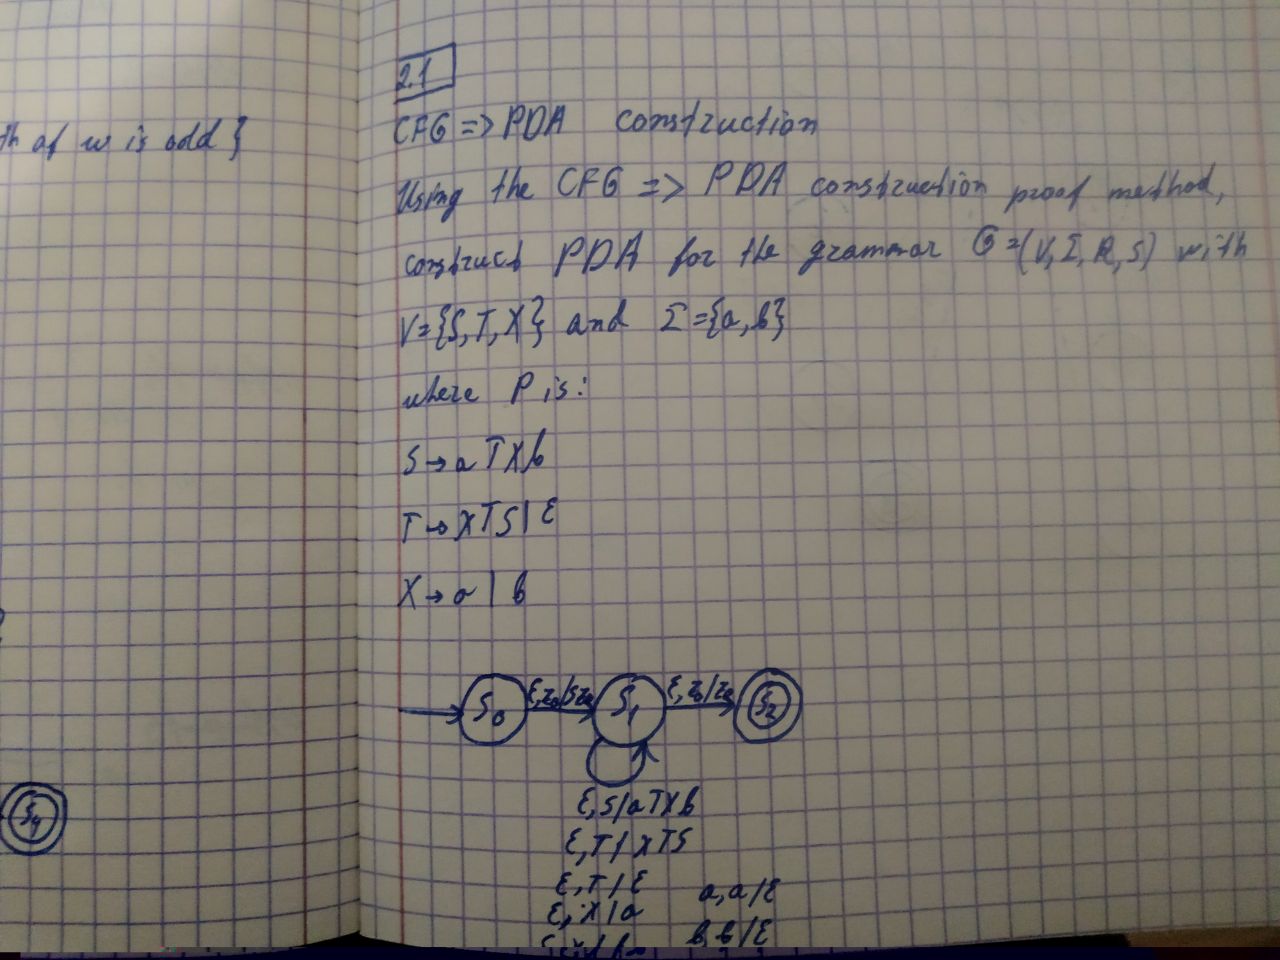 th of w is odd }
2.1
CFG => PDA construction
Using the CFG => PDA construction proof method,
construct PDA for the grammar G=(V,Σ,R,S) with
V={S,T,X} and Σ={a,b}
where P is:
S→aTXb
T→XTS|ε
X→a|b
S₀ ε,z₀/Sz₀ S₁ ε,z₀/z₀ S₂
ε,S/aTXb
S₄
ε,T/XTS
ε,T/ε a,a/ε
ε,X/a b,b/ε